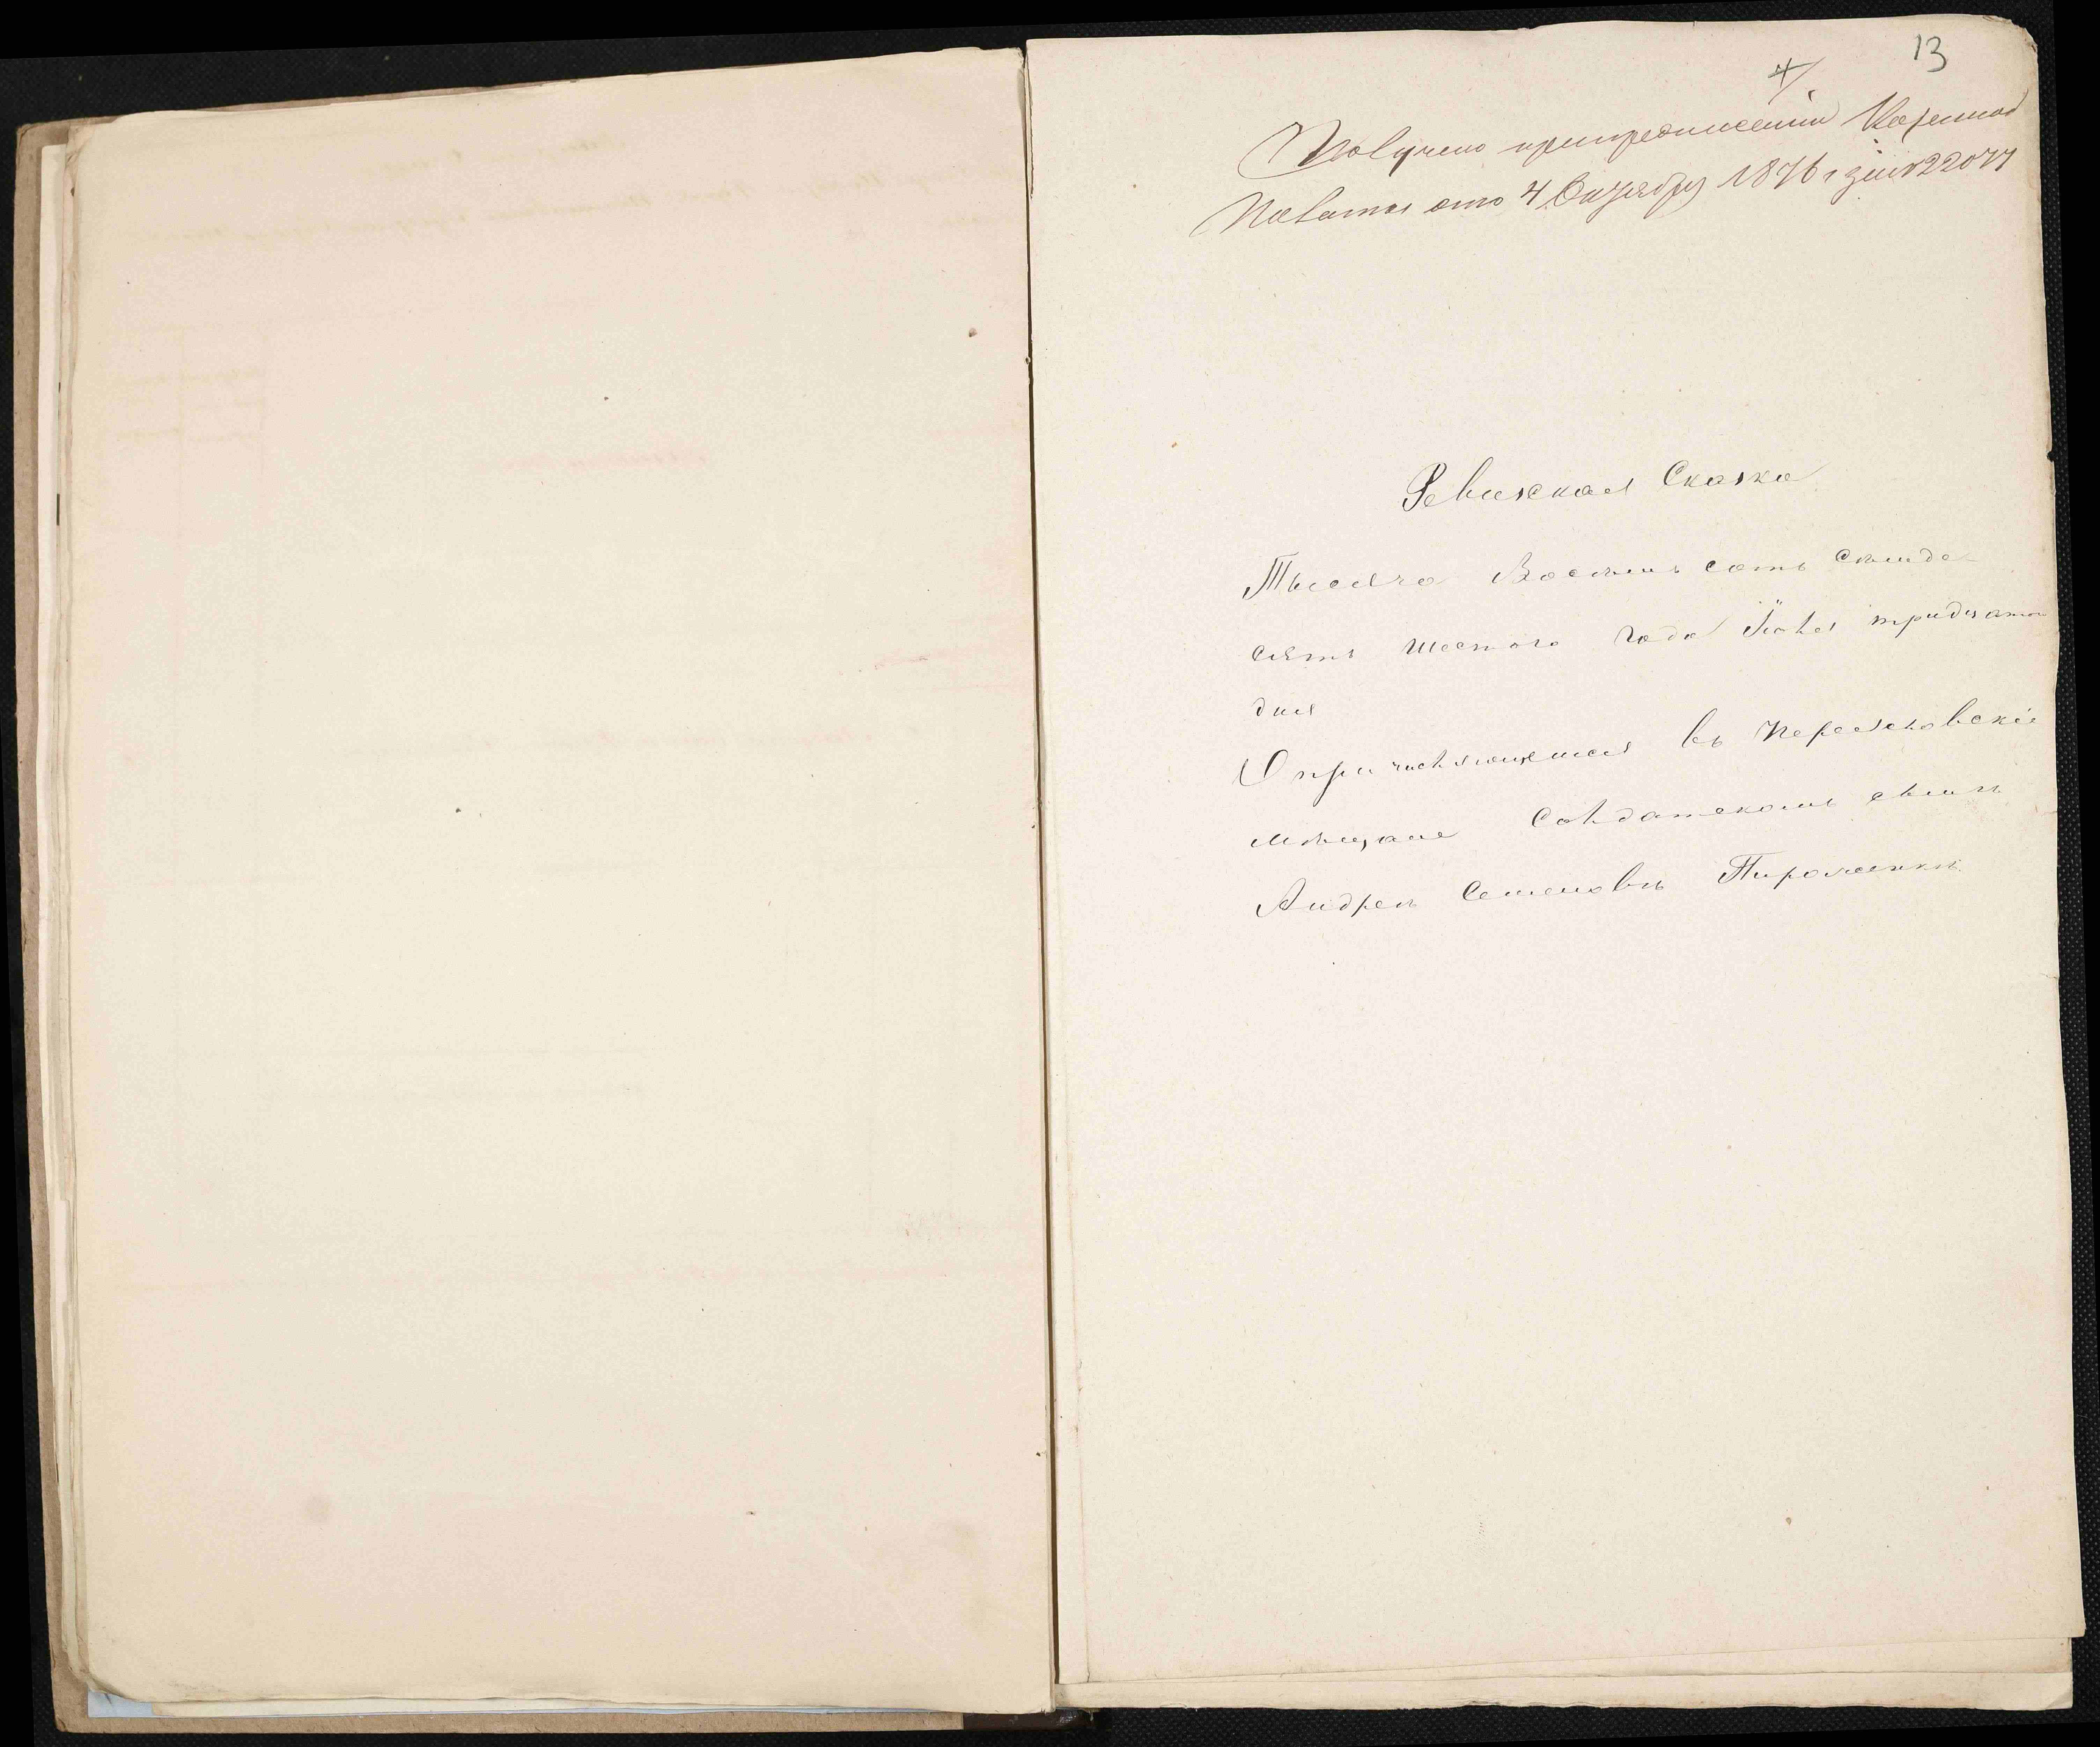 13
4/
Получено припредписании Казенной
Палаты отъ 4 Октября 1876 г за № 22077
Ревизская Сказка
Тысяча Восемь сотъ Семьде
сятъ шестого года Іюля тридцатого
дня
О причисляющемся въ Переясловскіе
мѣщане Солдатскомъ сынѣ
Андреѣ Семеновѣ